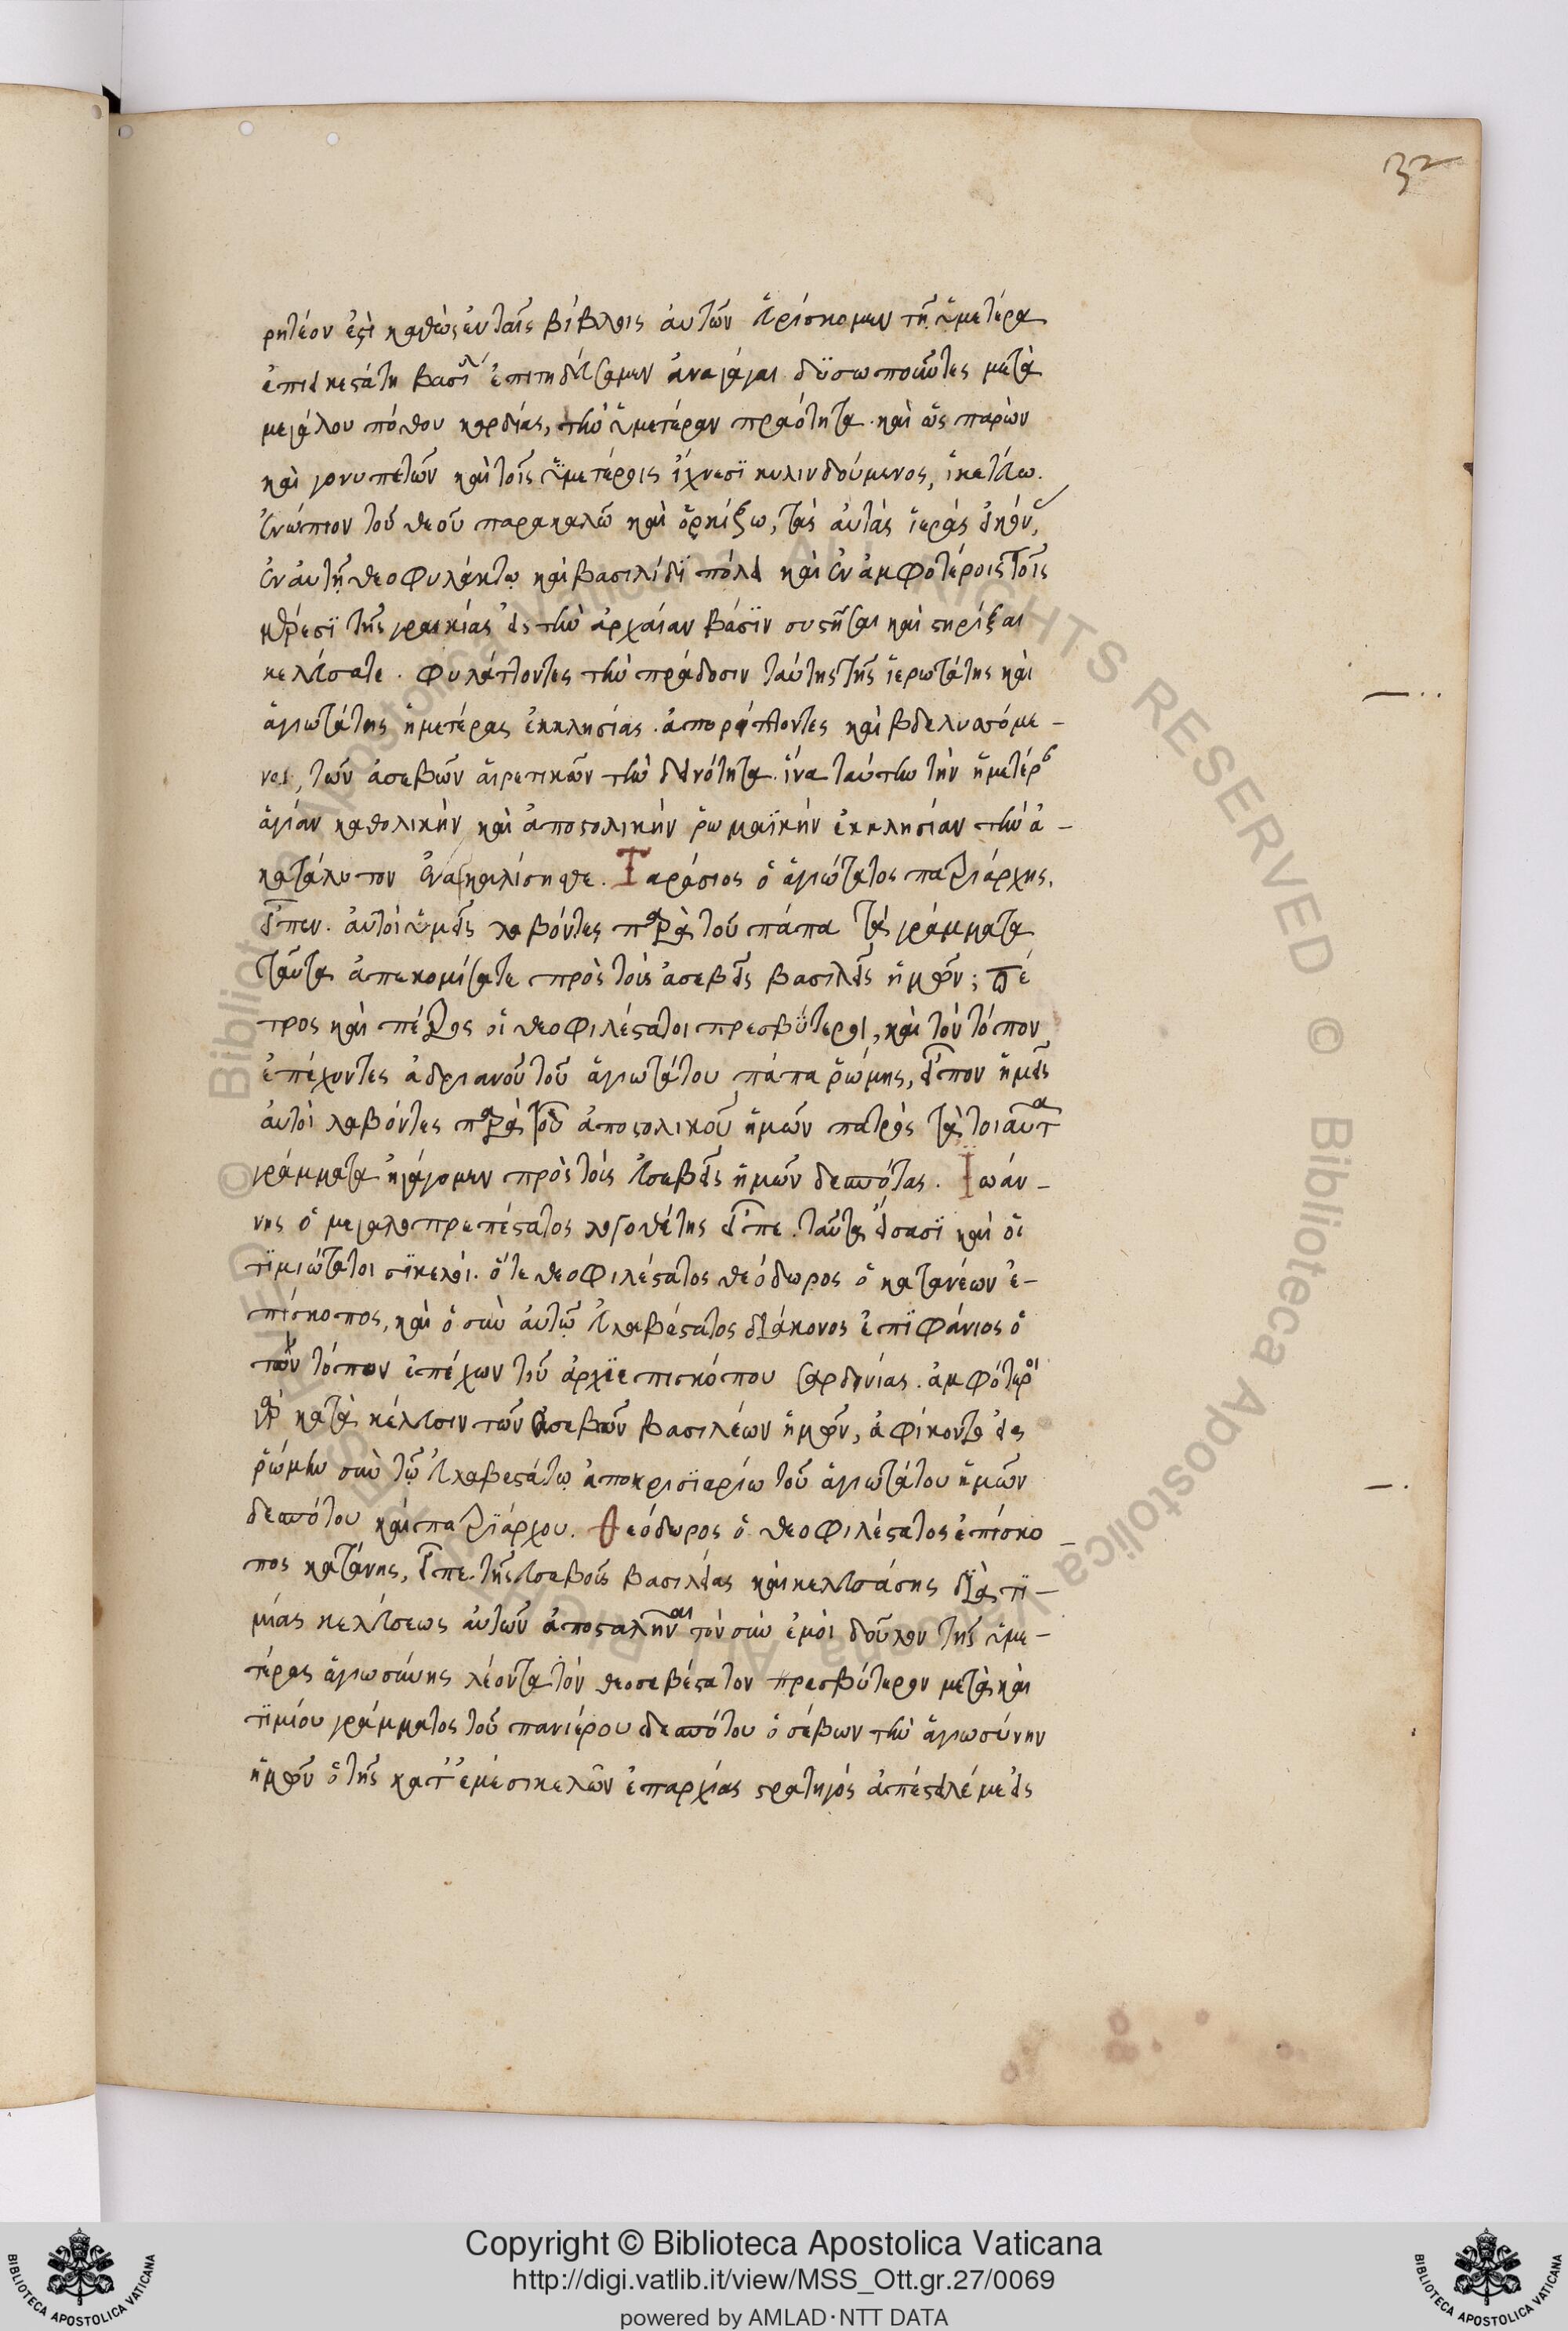 32
ρητέον ἐστὶ καθὼς ἐν ταῖς βίβλοις αὐτῶν εὑρίσκομεν τῇ ὑμετέρα
ἐπιεικεστάτη βασιλ ἐπιτηδεύσαμεν ἀναγάγαι δϋσωποῦντες μετὰ
μεγάλου πόθου καρδίας, τὴν ὑμετέραν πραότητα. καὶ ὡς παρὼν
καὶ γονυπετῶν καὶ τοῖς ὑμετέροις ἴχνεσϊ κυλινδούμενος, ἱκετεύω.
ἐνώπιον τοῦ θεοῦ παρακαλῶ καὶ ὁρκίζω, τὰς αὐτὰς ἱερὰς εἰκόν
ἐν αὐτῇ θεοφυλάκτω καὶ βασιλίδϊ πόλει καὶ ἐν ἀμφοτέροις τοῖς
μέρεσϊ τῆς γραικίας εἰς τὴν ἀρχαίαν βάσϊν συστῆσαι καὶ στηρίξαι
κελεύσατε. φυλάττοντες τὴν πράδοσιν ταύτης τῆς ἱερωτάτης καὶ
ἁγιωτάτης ἡμετέρας ἐκκλησίας. ἀπορρίπτοντες καὶ βδελυσσόμε-
νοι, τῶν ἀσεβῶν αἱρετικῶν τὴν δεινότητα. ἵνα ταύτην τὴν ἡμετέρ
ἁγίαν καθολικὴν καὶ ἀποστολικὴν ῥωμαϊκὴν ἐκκλησίαν τὴν ἀ-
κατάλυτον ἐναγκαλίσησθε. Ταράσιος ὁ ἁγιώτατος πατριάρχης,
εἶπεν. αὐτοὶ ὑμεῖς λαβόντες παρὰ τοῦ πάπα τὰ γράμματα
ταῦτα ἀπεκομίσατε πρὸς τοὺς εὐσεβεῖς βασιλεῖς ἡμῶν; πέ
τρος καὶ πέτρος οἱ θεοφιλέστατοι πρεσβύτεροι, καὶ τὸν τόπον
ἐπέχοντες ἀδριανοῦ τοῦ ἁγιωτάτου πάπα ῥώμης, εἶπον ἡμεῖς
αὐτοὶ λαβόντες παρὰ τοῦ ἀποστολικοῦ ἡμῶν πατρὸς τὰ τοιαῦτα
γράμματα ἠγάγομεν πρὸς τοὺς εὐσεβεῖς ἡμῶν δεσπότας. Ἰωάν-
νης ὁ μεγαλοπρεπέστατος λογοθέτης εἶπε. ταῦτα εἴσασϊ καὶ οἱ
τϊμιώτατοι σϊκελοί. ὅ τε θεοφιλέστατος θεόδωρος ὁ κατανέων ἐ-
πίσκοπος, καὶ ὁ σὺν αὐτῷ εὐλαβέστατος διάκονος ἐπϊφάνιος ὁ
τὸν τόπον ἐπέχων τοῦ ἀρχϊεπισκόπου σαρδηνίας. ἀμφότεροι
γὰρ κατὰ κέλευσιν τῶν εὐσεβῶν βασιλέων ἡμῶν, ἀφίκοντο εἰς
ῥώμην σὺν τῷ εὐλαβεστάτω ἀποκρισϊαρίω τοῦ ἁγιωτάτου ἡμῶν
δεσπότου καὶ πατρϊάρχου. Θεόδωρος ὁ θεοφιλέστατος ἐπίσκο-
πος κατάνης, εἶπε. τῆς εὐσεβοῦς βασιλείας καὶ κελευσάσης διὰ τϊ-
μίας κελεύσεως αὐτῶν ἀποσταλῆναι τὸν σὺν ἐμοὶ δοῦλον τῆς ὑμε-
τέρας ἁγιωσύνης λέοντα τὸν θεοσεβέστατον πρεσβύτερον μετὰ καὶ
τϊμίου γράμματος τοῦ πανιέρου δεσπότου ὁ σέβων τὴν ἁγιωσύνην
ἡμῶν ὁ τῆς κατ' ἐμὲ σικελῶν ἐπαρχίας στρατηγός ἀπέστειλέ με εἰς
Copyright © Biblioteca Apostolica Vaticana
http://digi.vatlib.it/view/MSS_Ott.gr.27/0069
powered by AMLAD·NTT DATA